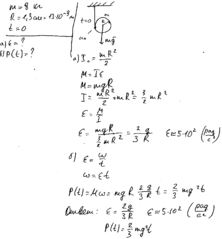 m = 8 кг
R = 1,3 см = 13·10⁻³ м
t = 0
а) ε = ?
б) P(t) = ?
t=0
m
mg
а) I₀ = mR²/2
M = Iε
M = mgR
I = mR²/2 + mR² = 3/2 mR²
ε = M/I
ε = mgR / (3/2 mR²) = 2/3 g/R ε ≈ 5·10² (рад/с²)
б) ε = ω/t
ω = εt
P(t) = Mω = mgR · 2/3 g/R t = 2/3 mg²t
Ответ: ε = 2g/3R ε ≈ 5·10² (рад/с²)
P(t) = 2/3 mg²t